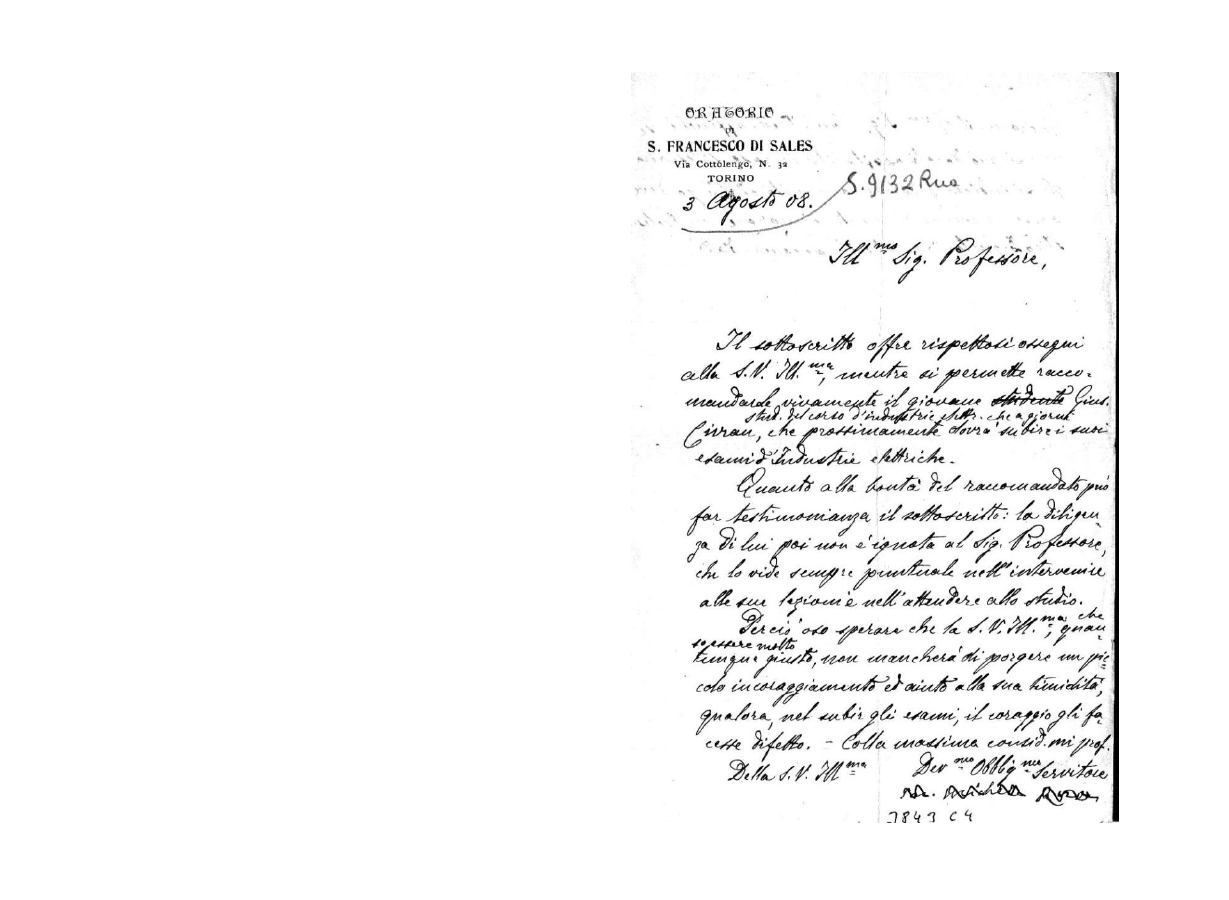 ORATORIO
DI
S. FRANCESCO DI SALES
Via Cottolengo, N. 32
TORINO
3 Agosto 08.
S.9132 Rua
Ill.mo Sig. Professore,
Il sottoscritto offre rispettosi ossequi
alla S.V. Ill.ma, mentre si permette racco-
mandarle vivamente il giovane studente Gius.
stud. del corso d'industrie elettr. che a giorni
Civran, che prossimamente dovrà subire i suoi
esami d'Industrie elettriche.
Quanto alla bontà del raccomandato può
far testimonianza il sottoscritto: la diligen-
za di lui poi non è ignota al Sig. Professore,
che lo vide sempre puntuale nell'intervenire
alle sue lezioni e nell'attendere allo studio.
Perciò oso sperare che la S.V. Ill.ma, che
quan-
so essere molto
tunque giusto, non mancherà di porgere un pic-
colo incoraggiamento ed aiuto alla sua timidità,
qualora, nel subir gli esami, il coraggio gli fa-
cesse difetto. – Colla massima consid. mi prof.
Della S.V. Ill.ma Dev.mo Obblig.mo Servitore
Rua
7843 C4